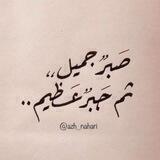 صَبرٌ جميل،،
ثم جَبرٌ عَظيم..
@azh_nahari